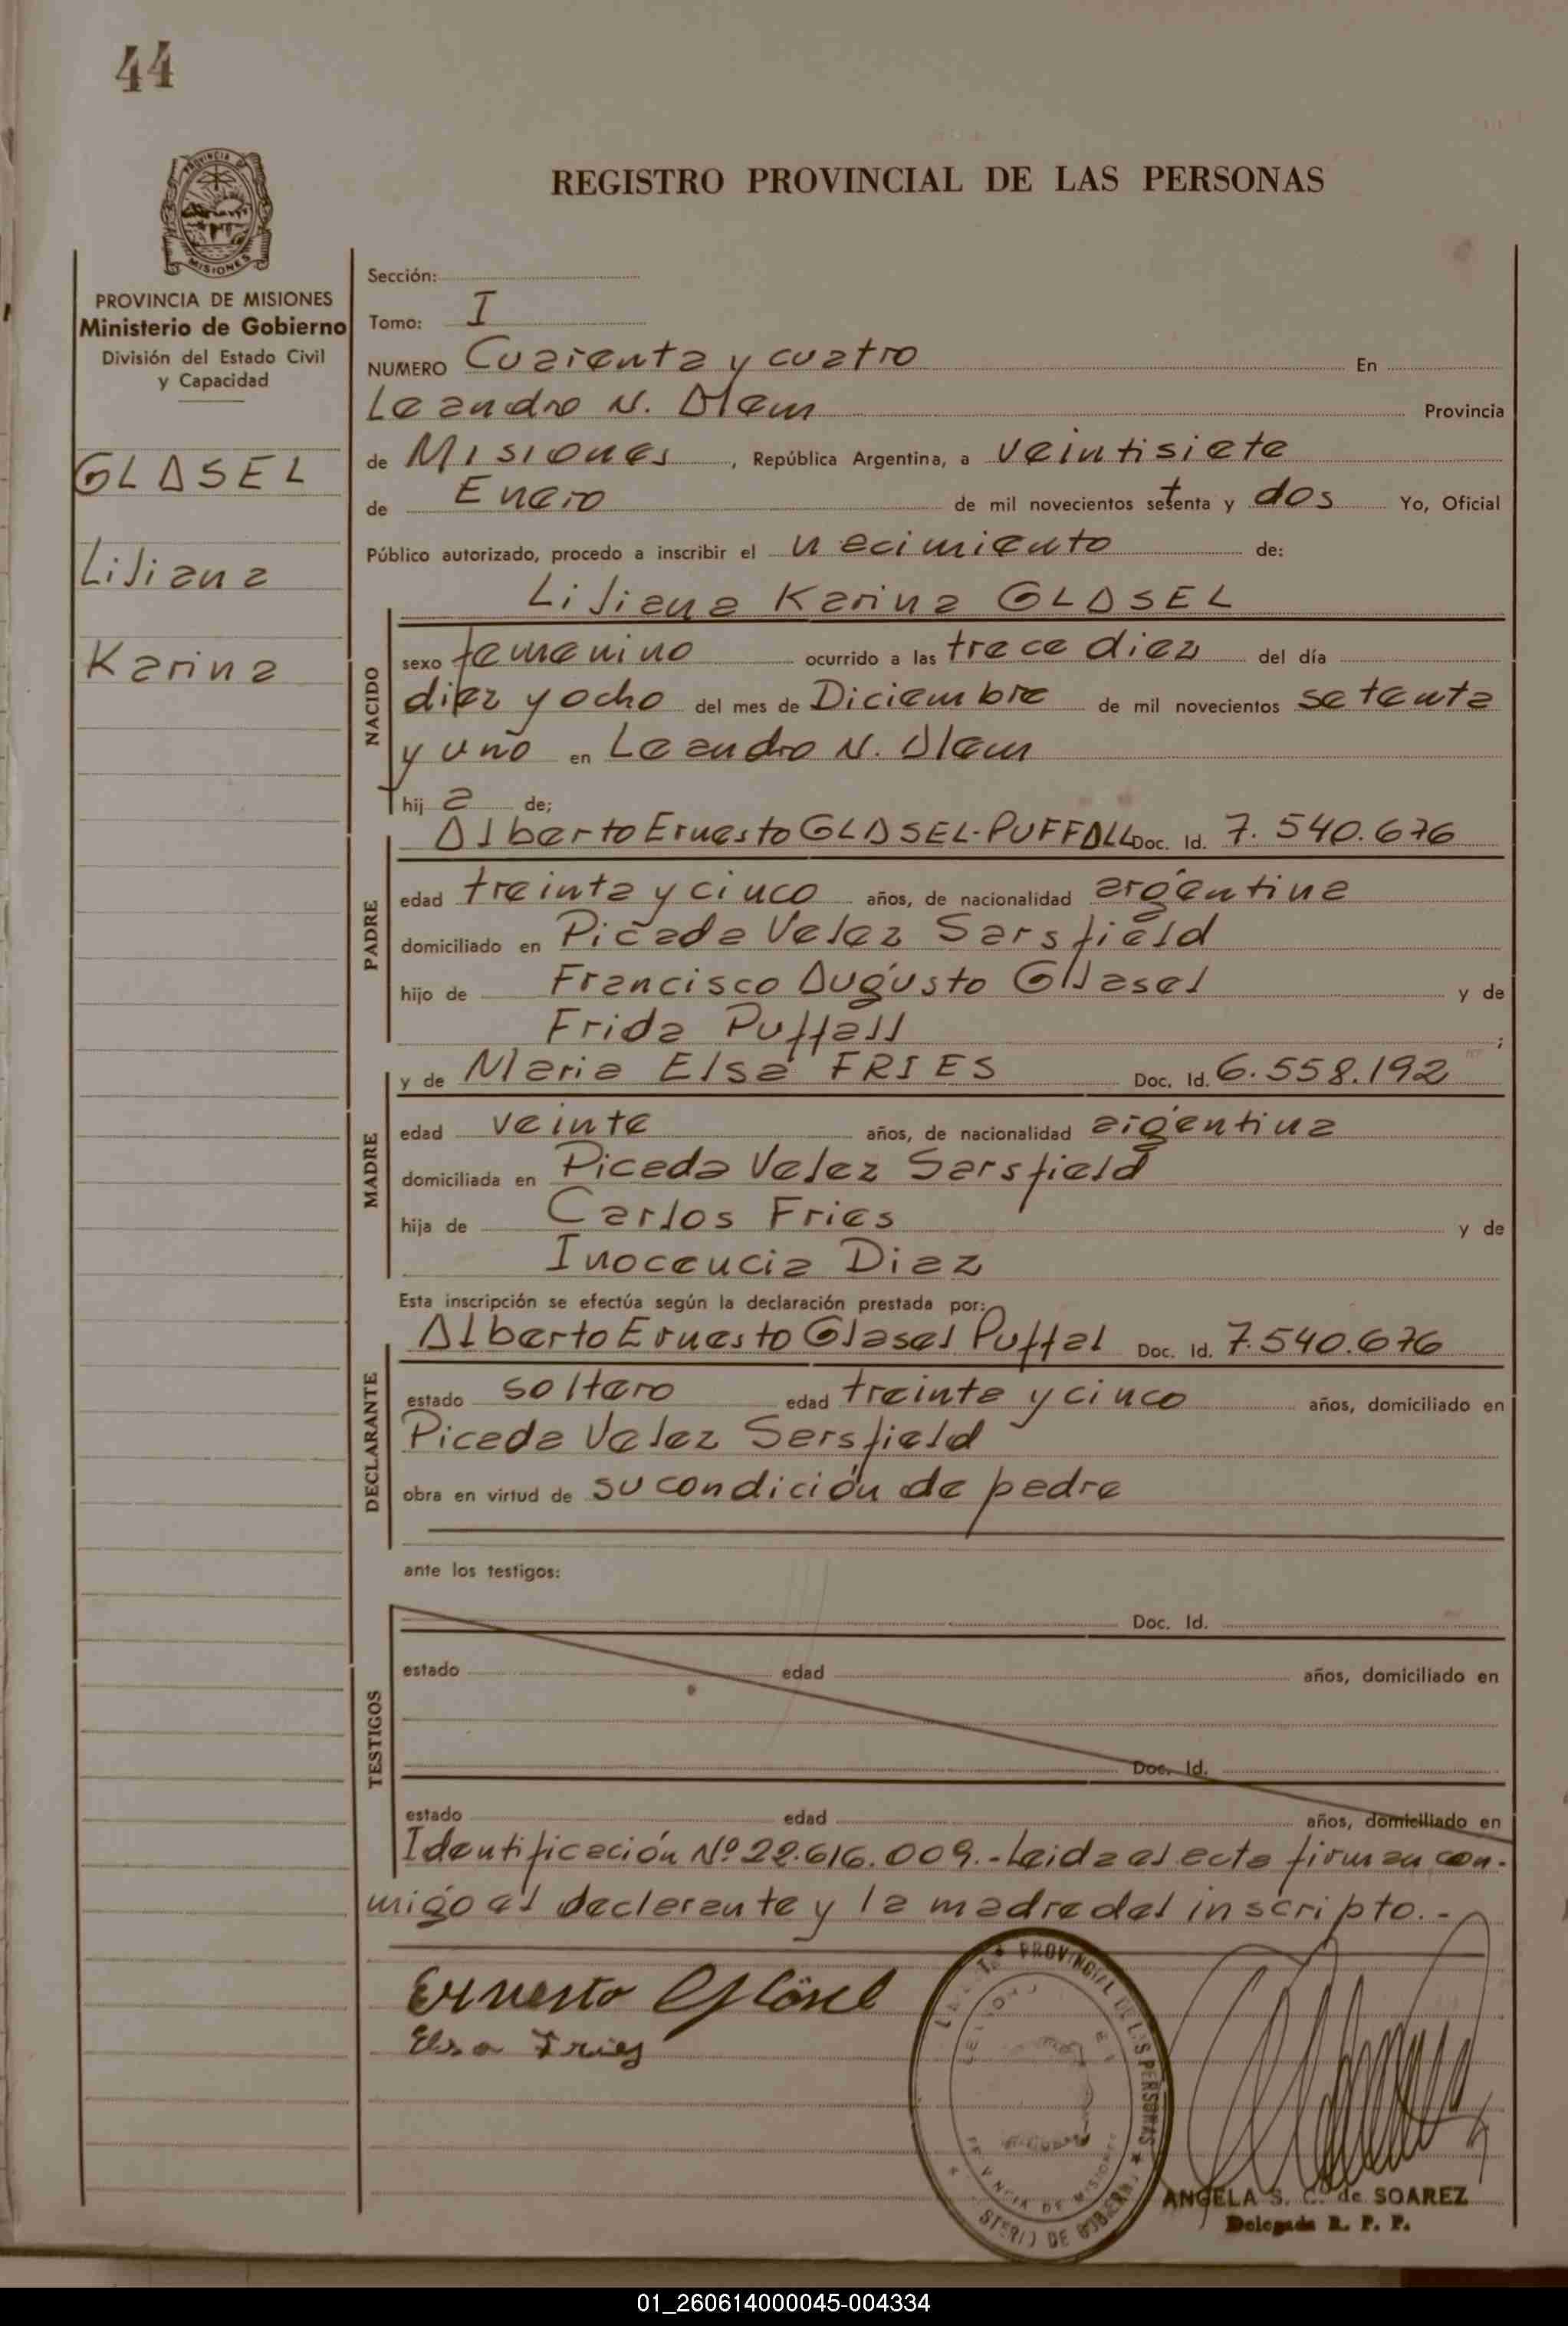 44
PROVINCIA DE
MISIONES
REGISTRO PROVINCIAL DE LAS PERSONAS
PROVINCIA DE MISIONES
Ministerio de Gobierno
División del Estado Civil
y Capacidad
GLASEL
Liliana
Karina
Sección:
Tomo: I
NUMERO Cuarenta y cuatro En
Leandro N. Alem Provincia
de Misiones, República Argentina, a veintisiete
de Enero de mil novecientos setenta y dos Yo, Oficial
Público autorizado, procedo a inscribir el nacimiento de:
Liliana Karina GLASEL
NACIDO
sexo femenino ocurrido a las trece diez del día
diez y ocho del mes de Diciembre de mil novecientos setenta
y uno en Leandro N. Alem
hij a de;
Alberto Ernesto GLASEL-PUFFALL Doc. Id. 7.540.676
PADRE
edad treinta y cinco años, de nacionalidad argentina
domiciliado en Picada Velez Sarsfield
hijo de Francisco Augusto Gllasel y de
Frida Puffall ;
y de Maria Elsa FRIES Doc. Id. 6.558.192
MADRE
edad veinte años, de nacionalidad argentina
domiciliada en Picada Velez Sarsfield
hija de Carlos Fries y de
Inocencia Diaz
Esta inscripción se efectúa según la declaración prestada por:
Alberto Ernesto Glasel Puffal Doc. Id. 7.540.676
DECLARANTE
estado soltero edad treinta y cinco años, domiciliado en
Picada Velez Sarsfield
obra en virtud de su condición de padre
ante los testigos:
TESTIGOS
Doc. Id.
estado edad años, domiciliado en
Doc. Id.
estado edad años, domiciliado en
Identificación Nº 22.616.009.-Leida el acta firman con-
migo el declarante y la madre del inscripto.-
Ernesto Glösel
Elsa Fries
PROVINCIAL DE LAS PERSONAS
DE MISIONES
DE GOBIERNO
ANGELA S. C. de SOAREZ
Delegada R. P. P.
01_260614000045-004334